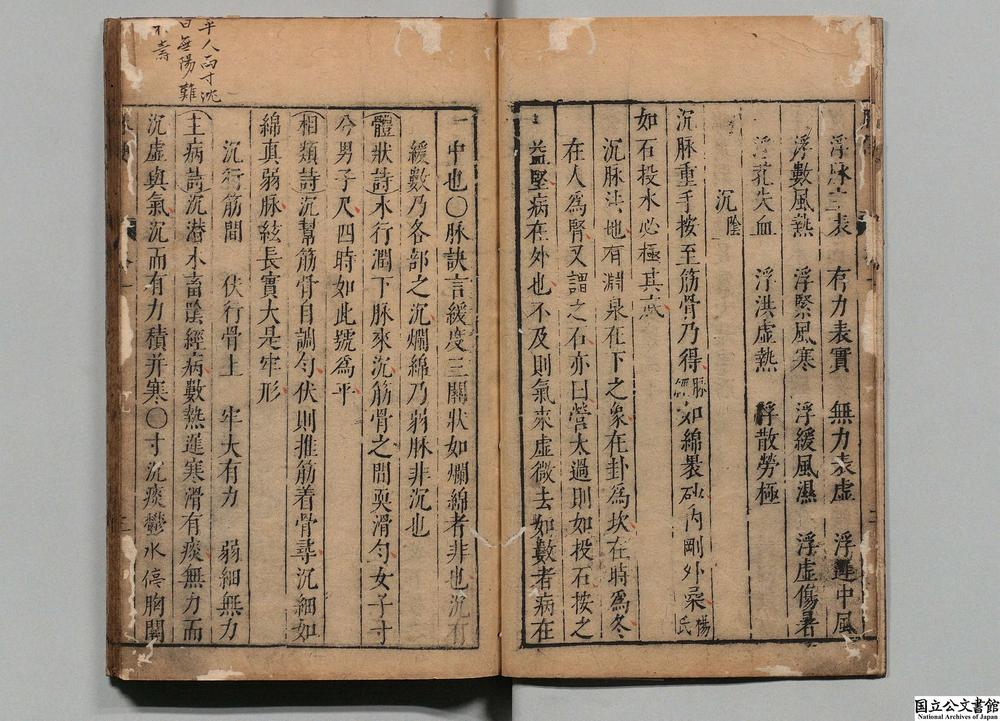 浮脉主表　有力表實　無力表虛　浮遲中風
浮數風熱　浮緊風寒　浮緩風濕　浮虛傷暑
浮芤失血　浮洪虛熱　浮散勞極
沉陰
沉脉重手按至筋骨乃得脉經如綿裹砂內剛外柔楊氏
如石投水必極其底
沉脉法地有淵泉在下之象在卦為坎在時為冬
在人為腎又謂之石亦曰營太過則如投石按之
益堅病在外也不及則氣來虛微去如數者病在
中也○脉訣言緩度三關狀如爛綿者非也沉有
緩數乃各部之沉爛綿乃弱脉非沉也
體狀詩水行潤下脉來沉筋骨之間耎滑勻女子寸
兮男子尺四時如此號為平
相類詩沉幫筋骨自調勻伏則推筋着骨尋沉細如
綿真弱脉絃長實大是牢形
沉行筋間　伏行骨上　牢大有力　弱細無力
主病詩沉潜水畜陰經病數熱遲寒滑有痰無力而
沉虛與氣沉而有力積并寒○寸沉痰鬱水停胸關
平人兩寸沉
曰無陽難
不壽
国立公文書館
National Archives of Japan